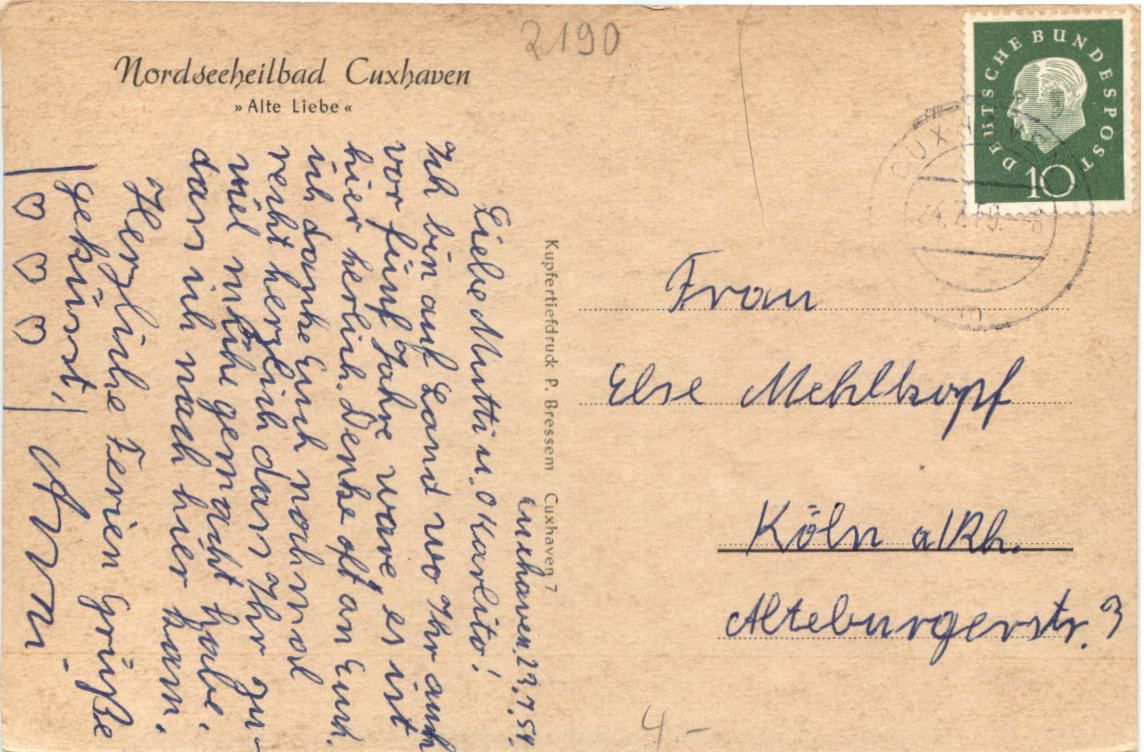 2190
Nordseeheilbad Cuxhaven
»Alte Liebe«
DEUTSCHE BUNDESPOST
10
CUXHAVEN
24.7.59.-8
m
Cuxhaven, 23.7.59.
Liebe Mutti u. O Karlito!
Ich bin auf Land wo Ihr auch
vor fünf Jahre ware, es ist
hier herlich. Denke oft an Euch.
ich danke Euch nohmal
recht herzlich dass Ihr zu-
viel mühe gemacht habe.
dass ich nach hier kam.
Herzliche Ferien Grüße
geküsst,
♡ ♡ ♡
Kupfertiefdruck P. Bressem Cuxhaven 7
Frau
Else Mehlkopf
Köln a/Rh.
Alteburgerstr. 3
4.-